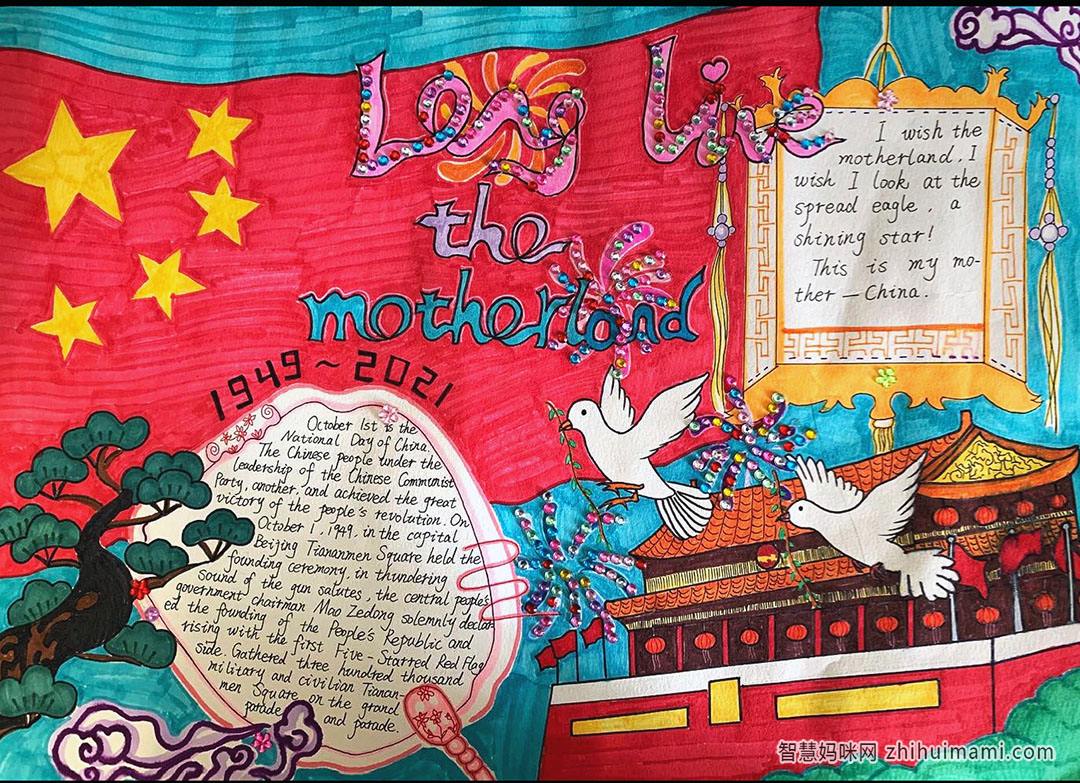 Long Live
the
motherland
1949~2021
I wish the
motherland, I
wish I look at the
spread eagle, a
shining star!
This is my mo-
ther — China.
October 1st is the
National Day of China.
The Chinese people under the
leadership of the Chinese Communist
Party, another, and achieved the great
victory of the people's revolution. On
October 1, 1949, in the capital
Beijing Tiananmen Square held the
founding ceremony, in thundering
sound of the gun salutes, the central people's
government chairman Mao Zedong solemnly declar-
ed the founding of the People's Republic and
rising with the first Five-Starred Red Flag
side. Gathered three hundred thousand
military and civilian Tianan-
men Square on the grand
parade and parade.
智慧妈咪网 zhihuimami.com